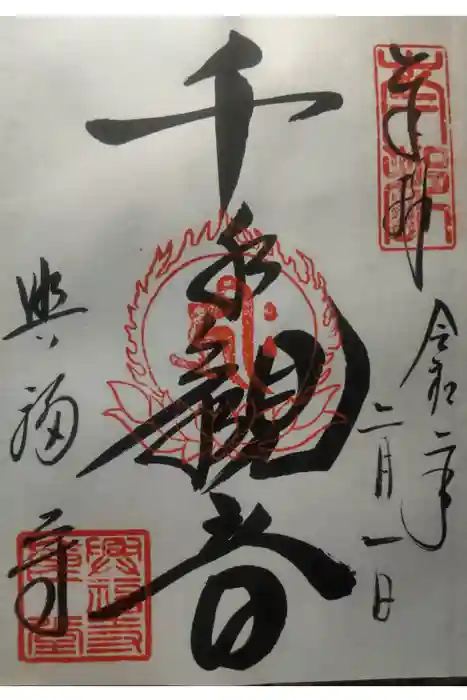 奉拝
令和二年
二月一日
千手観音
興福寺